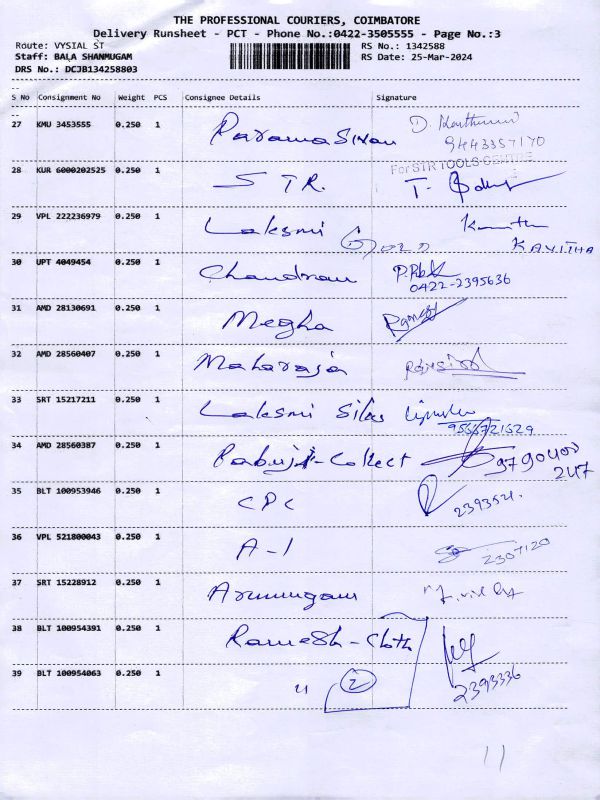 THE PROFESSIONAL COURIERS, COIMBATORE
Delivery Runsheet - PCT - Phone No.:0422-3505555 - Page No.:3
Route: VYSIAL ST RS No.: 1342588
Staff: BALA SHANMUGAM RS Date: 25-Mar-2024
DRS No.: DCJB134258803
S No Consignment No Weight PCS Consignee Details Signature
27 KMU 3453555 0.250 1 Paramasivan
9443357170
For STR TOOLS CENTRE
28 KUR 6000202525 0.250 1 STR.
29 VPL 222236979 0.250 1 Laksmi Gold KAVITHA
30 UPT 4049454 0.250 1 Chandran
0422-2395636
31 AMD 28130691 0.250 1 Megha
32 AMD 28560407 0.250 1 Maharaja
33 SRT 15217211 0.250 1 Laksmi Silks
34 AMD 28560387 0.250 1 Babuji-Collect
35 BLT 100953946 0.250 1 CPC 2393521.
36 VPL 521800043 0.250 1 A-1 2307120
37 SRT 15228912 0.250 1 Arumugam
38 BLT 100954391 0.250 1 Ramesh-Cloth
39 BLT 100954063 0.250 1 " 2 2393336
11